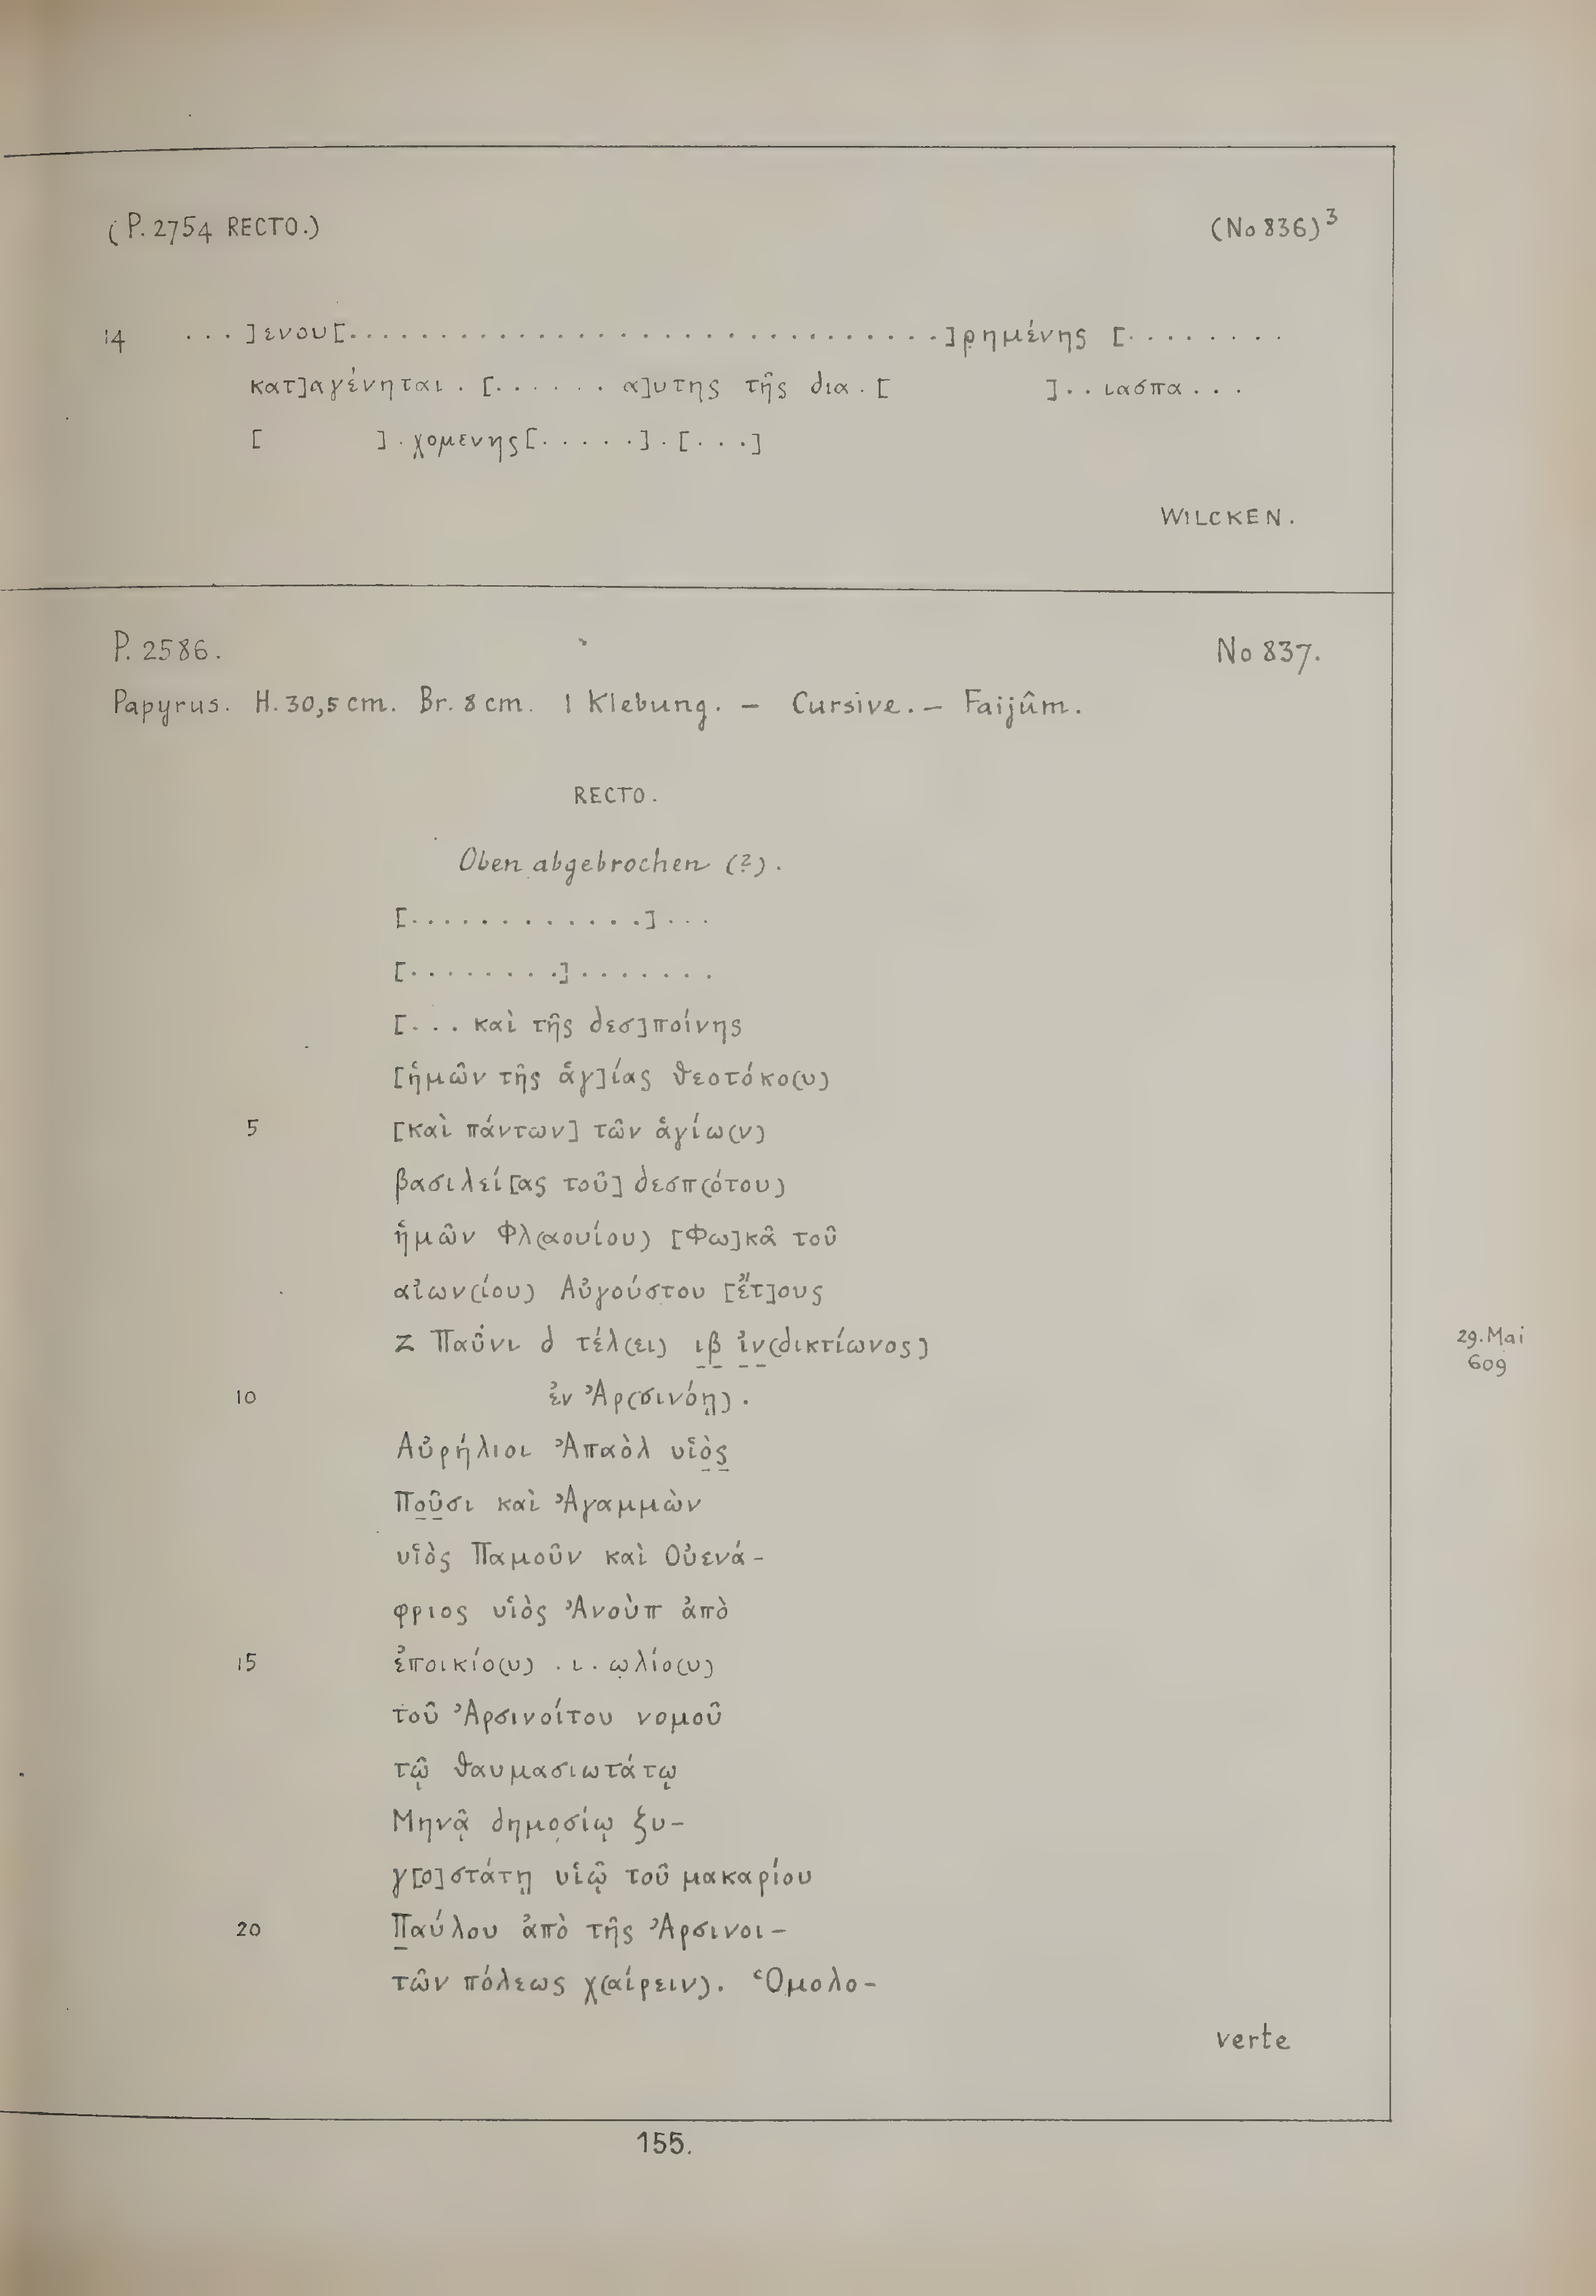 (P. 2754 RECTO.) (No 836)³
14 ...]ενου[............................]ρημένης [........
κατ]αγένηται . [...... α]υτης τῆς δια . [ ] . . ιασπα . . .
[ ] . χομενης[.....] . [...]
WILCKEN.
P. 2586. No 837.
Papyrus. H. 30,5 cm. Br. 8 cm. 1 Klebung. – Cursive. – Faijûm.
RECTO.
Oben abgebrochen (?).
[............] ...
[........] .......
[... καὶ τῆς δεσ]ποίνης
[ἡμῶν τῆς ἁγ]ίας θεοτόκο(υ)
5 [καὶ πάντων] τῶν ἁγίω(ν)
βασιλεί[ας τοῦ] δεσπ(ότου)
ἡμῶν Φλ(αουίου) [Φω]κᾶ τοῦ
αἰων(ίου) Αὐγούστου [ἔτ]ους
Ζ Παῦνι δ τέλ(ει) ιβ ἰν(δικτίωνος) 29. Mai 609
10 ἐν Ἀρ(σινόῃ).
Αὐρήλιοι Ἀπαὸλ υἱὸς
Ποῦσι καὶ Ἀγαμμὼν
υἱὸς Παμοῦν καὶ Οὐενά-
φριος υἱὸς Ἀνοὺπ ἀπὸ
15 ἐποικίο(υ) . ι . ωλίο(υ)
τοῦ Ἀρσινοίτου νομοῦ
τῷ θαυμασιωτάτῳ
Μηνᾷ δημοσίῳ ξυ-
γ[ο]στάτῃ υἱῷ τοῦ μακαρίου
20 Παύλου ἀπὸ τῆς Ἀρσινοι-
τῶν πόλεως χ(αίρειν). Ὁμολο-
verte
155.